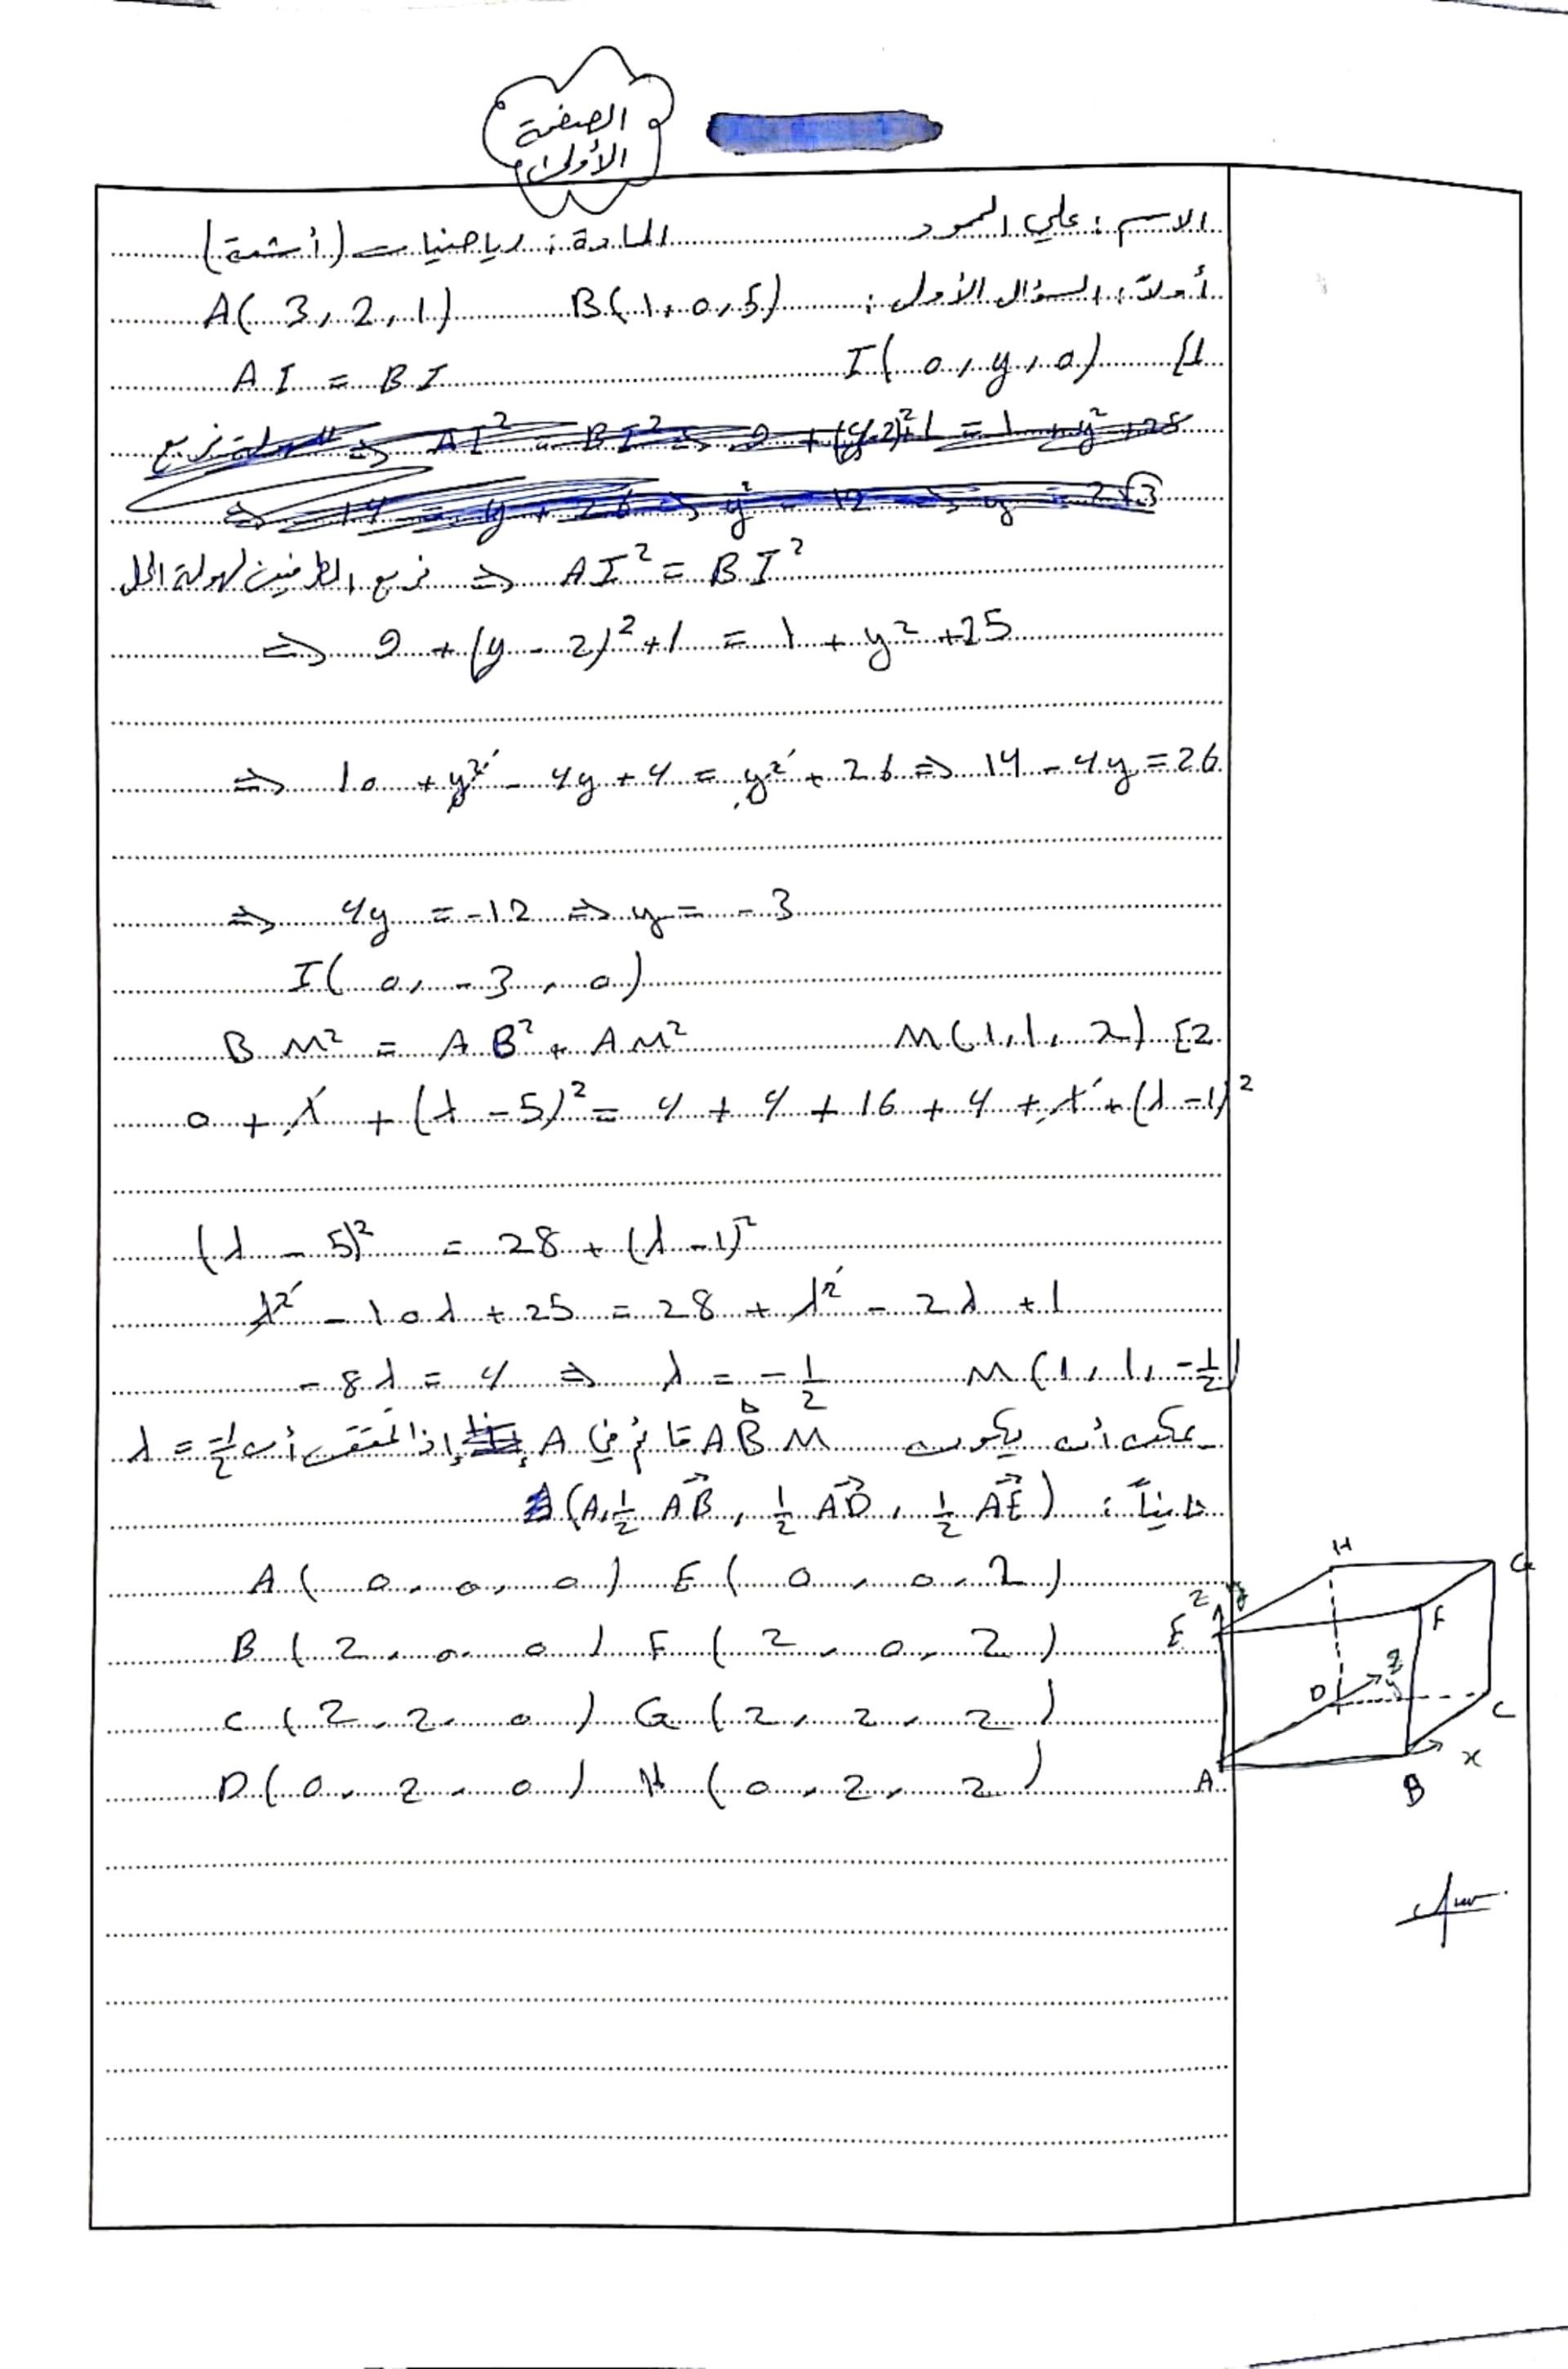 الصفحة
الأولى
الاسم: علي الحمود المادة: رياضيات (أشعة)
أولاً: السؤال الأول: A(3, 2, 1) B(1, 0, 5)
1] I(0, y, 0) AI = BI
⇒ AI² = BI² ⇒ 9 + (y-2)² + 1 = 1 + y² + 25
⇒ 14 = y² + 26 ⇒ y² = 12 ⇒ y = 2√3
نربع الطرفين لسهولة الحل ⇒ AI² = BI²
⇒ 9 + (y - 2)² + 1 = 1 + y² + 25
⇒ 10 + y² - 4y + 4 = y² + 26 ⇒ 14 - 4y = 26
⇒ 4y = -12 ⇒ y = -3
I(0, -3, 0)
2] M(1, 1, λ) BM² = AB² + AM²
0 + 1 + (λ - 5)² = 4 + 4 + 16 + 4 + 1 + (λ - 1)²
(λ - 5)² = 28 + (λ - 1)²
λ² - 10λ + 25 = 28 + λ² - 2λ + 1
-8λ = 4 ⇒ λ = -1/2 M(1, 1, -1/2)
يمكن أن يكون ABM قائم في A إذا تحقق أن λ = -1/2
ثانياً: (A, 1/2 AB, 1/2 AD, 1/2 AE)
A(0, 0, 0) E(0, 0, 2)
B(2, 0, 0) F(2, 0, 2)
C(2, 2, 0) G(2, 2, 2)
D(0, 2, 0) H(0, 2, 2)
H G
z
E F
D y C
A B x